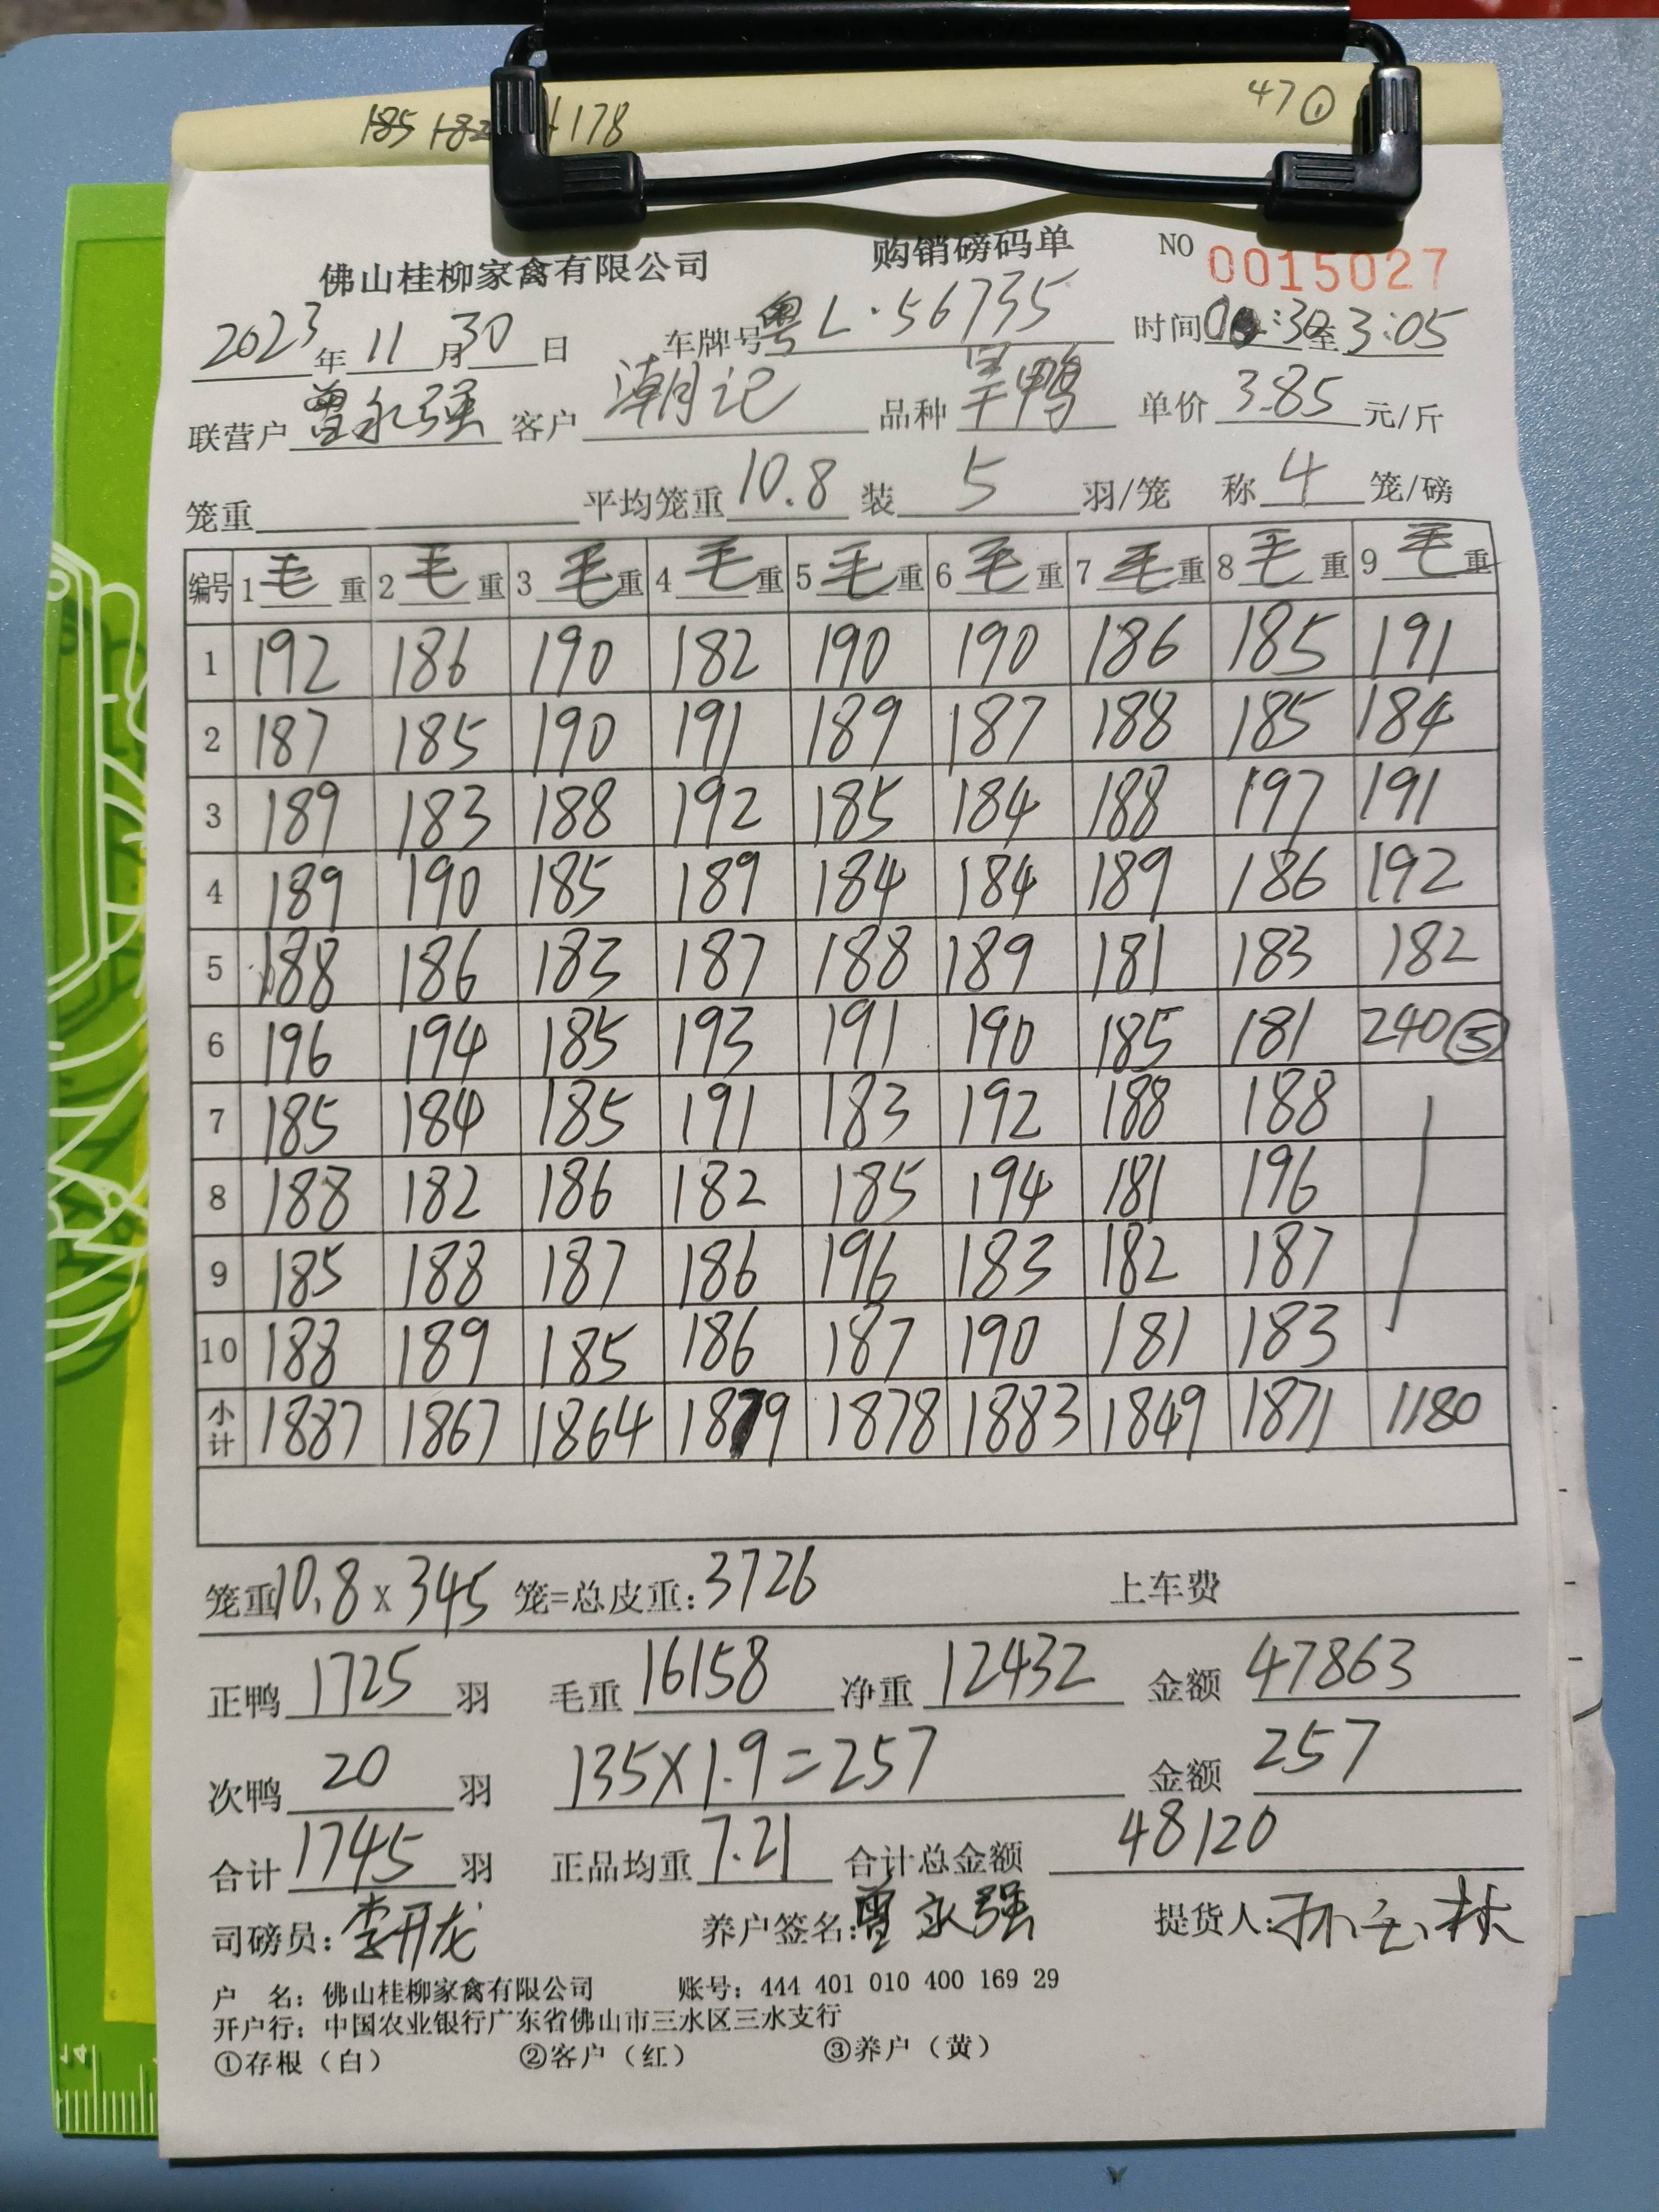 185 182 178 47①
佛山桂柳家禽有限公司 购销磅码单 NO 0015027
2023年11月30日 车牌号粤L·56735 时间:30至3:05
联营户曾永强 客户潮记 品种鸭 单价3.85元/斤
笼重 平均笼重10.8装5羽/笼 称4笼/磅
编号 1毛重 2毛重 3毛重 4毛重 5毛重 6毛重 7毛重 8毛重 9毛重
1 192 186 190 182 190 190 186 185 191
2 187 185 190 191 189 187 188 185 184
3 189 183 188 192 185 184 188 197 191
4 189 190 185 189 184 184 189 186 192
5 188 186 183 187 188 189 181 183 182
6 196 194 185 193 191 190 185 181 240⑤
7 185 184 185 191 183 192 188 188
8 188 182 186 182 185 194 181 196
9 185 188 187 186 196 183 182 187
10 188 189 185 186 187 190 181 183
小计 1887 1867 1864 1879 1878 1883 1849 1871 1180
笼重10.8x345笼=总皮重:3726 上车费
正鸭1725羽 毛重16158净重12432 金额47863
次鸭20羽 135x1.9=257 金额257
合计1745羽 正品均重7.21合计总金额48120
司磅员:李开龙 养户签名:曾永强 提货人:林
户 名:佛山桂柳家禽有限公司 账号:444 401 010 400 169 29
开户行:中国农业银行广东省佛山市三水区三水支行
①存根(白) ②客户(红) ③养户(黄)
14